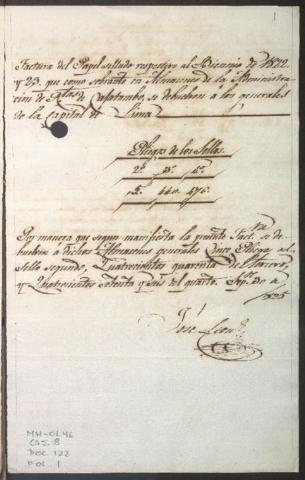 1
Factura del Papel sellado respectivo al Bienio de 1822
y 23. que como sobrante en Almacenes de la Administra
cion de de Caxatambo, se debuelven a los generales
de la Capital de Lima
Pliegos de los Sellos.
2º. 3º. 4º.
440. 476.
Por manera que segun manifiesta la presente Factra. se de
buelven a dichos Almacenes generales Pliegos del
Sello segundo, Quatrocientos quarenta del tercero,
y Quatrocientos Setenta y seis del quarto.
1825
José Leon
MH-OL46
CAJ. 8
DOC 122
FOL. 1